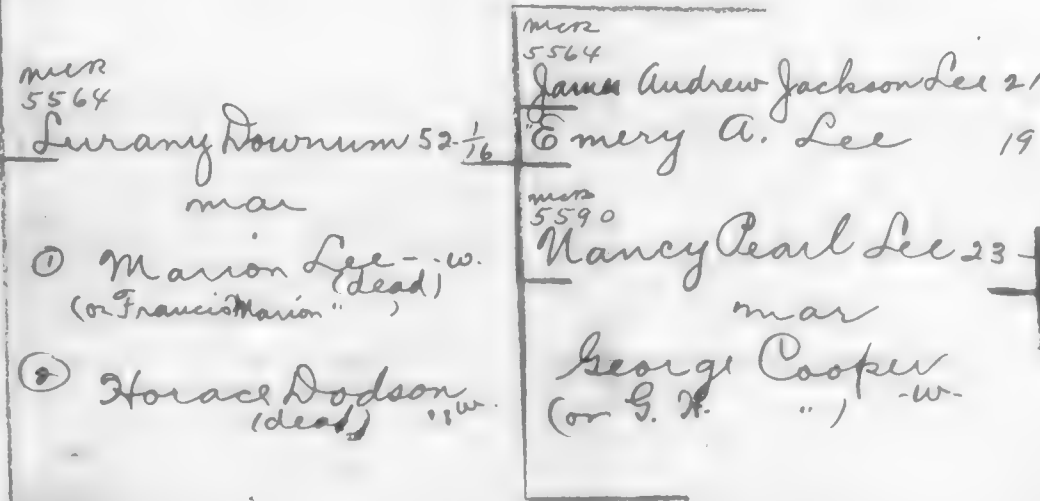 MCR
5564
Lurany Downum 52-1/16
mar
① Marion Lee - -w.
(dead)
(or Francis Marion " )
② Horace Dodson
(dead) " w.
MCR
5564
James Andrew Jackson Lee 21
Emery A. Lee 19
MCR
5590
Nancy Pearl Lee 23
mar
George Cooper
(or G. H. " ) -w-